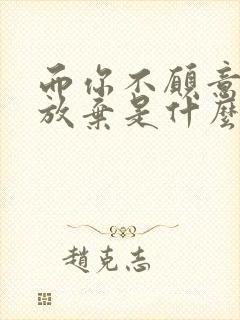 而你不願意
放棄是什麼
趙克志